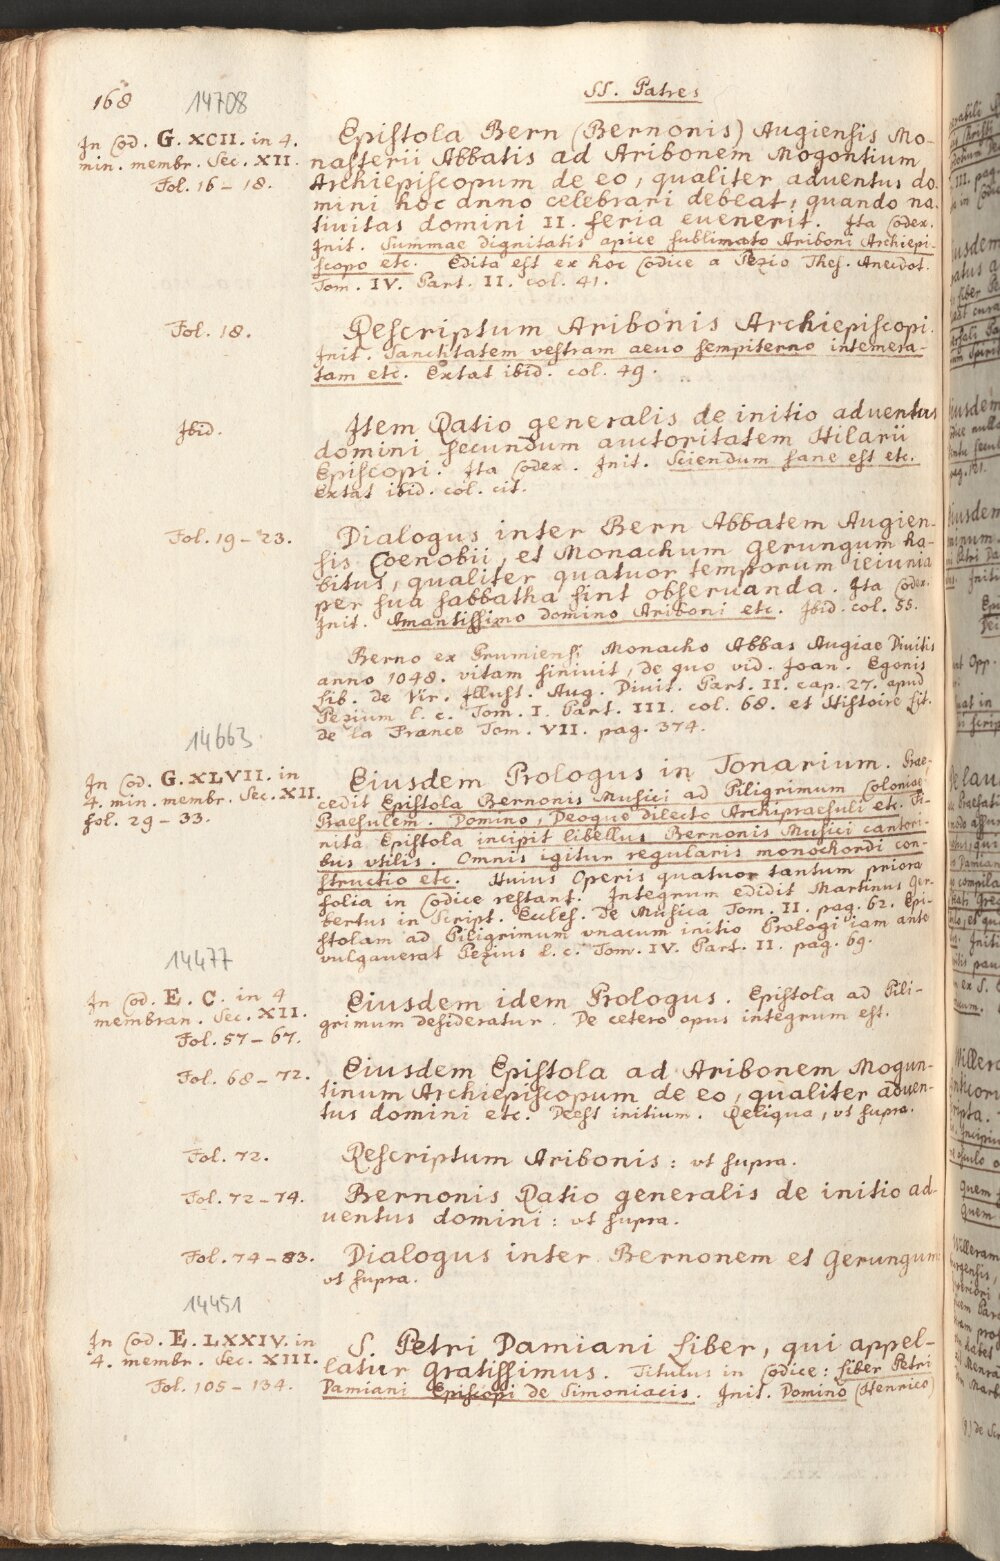 168
14708
SS. Patres
In Cod. G. XCII. in 4.
min. membr. Sec. XII.
Fol. 16 - 18.
Epistola Bern (Bernonis) Augiensis Mo-
nasterii Abbatis ad Aribonem Mogontium
Archiepiscopum de eo, qualiter aduentus do-
mini hoc anno celebrari debeat, quando na-
tiuitas domini II. feria euenerit. Ita Codex.
Init. Summae dignitatis apice sublimato Ariboni Archiepi-
scopo etc. Edita est ex hoc Codice a Pezio Thes. Anecdot.
Tom. IV. Part. II. col. 41.
Fol. 18.
Rescriptum Aribonis Archiepiscopi.
Init. Sanctitatem vestram aeuo sempiterno intemera-
tam etc. Extat ibid. col. 49.
Ibid.
Item Ratio generalis de initio aduentus
domini secundum auctoritatem Hilarii
Episcopi. Ita Codex. Init. Sciendum sane est etc.
Extat ibid. col. cit.
Fol. 19 - 23.
Dialogus inter Bern Abbatem Augien-
sis Coenobii, et Monachum Gerungum ha-
bitus, qualiter quatuor temporum ieiunia
per sua sabbatha sint obseruanda. Ita Codex.
Init. Amantissimo domino Ariboni etc. Ibid. col. 55.
Berno ex Prumiensi Monacho Abbas Augiae Diuitis
anno 1048. vitam finiuit, de quo vid. Joan. Egonis
Lib. de Vir. Illust. Aug. Diuit. Part. II. cap. 27. apud
Pezium l. c. Tom. I. Part. III. col. 68. et Histoire Lit.
de la France Tom. VII. pag. 374.
14663
In Cod. G. XLVII. in
4. min. membr. Sec. XII.
fol. 29 - 33.
Eiusdem Prologus in Tonarium. Prae-
cedit Epistola Bernonis Musici ad Piligrimum Coloniae
Praesulem. Domino, Deoque dilecto Archipraesuli etc. Fi-
nita Epistola incipit libellus Bernonis Musici cantori-
bus vtilis. Omnis igitur regularis monochordi con-
structio etc. Huius Operis quatuor tantum priora
folia in Codice restant. Integrum edidit Martinus Ger-
bertus in Script. Eccles. de Musica Tom. II. pag. 62. Epi-
stolam ad Piligrimum vnacum initio Prologi iam ante
vulgauerat Pezius l. c. Tom. IV. Part. II. pag. 69.
14477
In Cod. E. C. in 4
membran. Sec. XII.
Fol. 57 - 67.
Eiusdem idem Prologus. Epistola ad Pili-
grimum desideratur. De cetero opus integrum est.
Fol. 68 - 72.
Eiusdem Epistola ad Aribonem Mogun-
tinum Archiepiscopum de eo, qualiter aduen-
tus domini etc. Deest initium. Reliqua, vt supra.
Fol. 72.
Rescriptum Aribonis: vt supra.
Fol. 72 - 74.
Bernonis Ratio generalis de initio ad-
uentus domini: vt supra.
Fol. 74 - 83.
Dialogus inter Bernonem et Gerungum
vt supra.
14451
In Cod. E. LXXIV. in
4. membr. Sec. XIII.
Fol. 105 - 134.
S. Petri Damiani Liber, qui appel-
latur Gratissimus. Titulus in Codice: Liber Petri
Damiani Episcopi de Simoniacis. Init. Domino (Henrico)